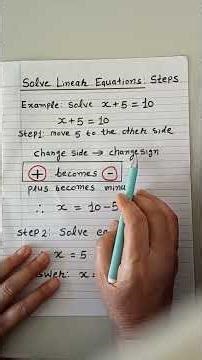 Solve Linear Equations: Steps
Example: Solve x+5=10
x+5=10
Step1: move 5 to the other side
change side → change sign
+ becomes -
plus becomes minu
∴ x = 10-5
Step 2: Solve
x = 5
x =